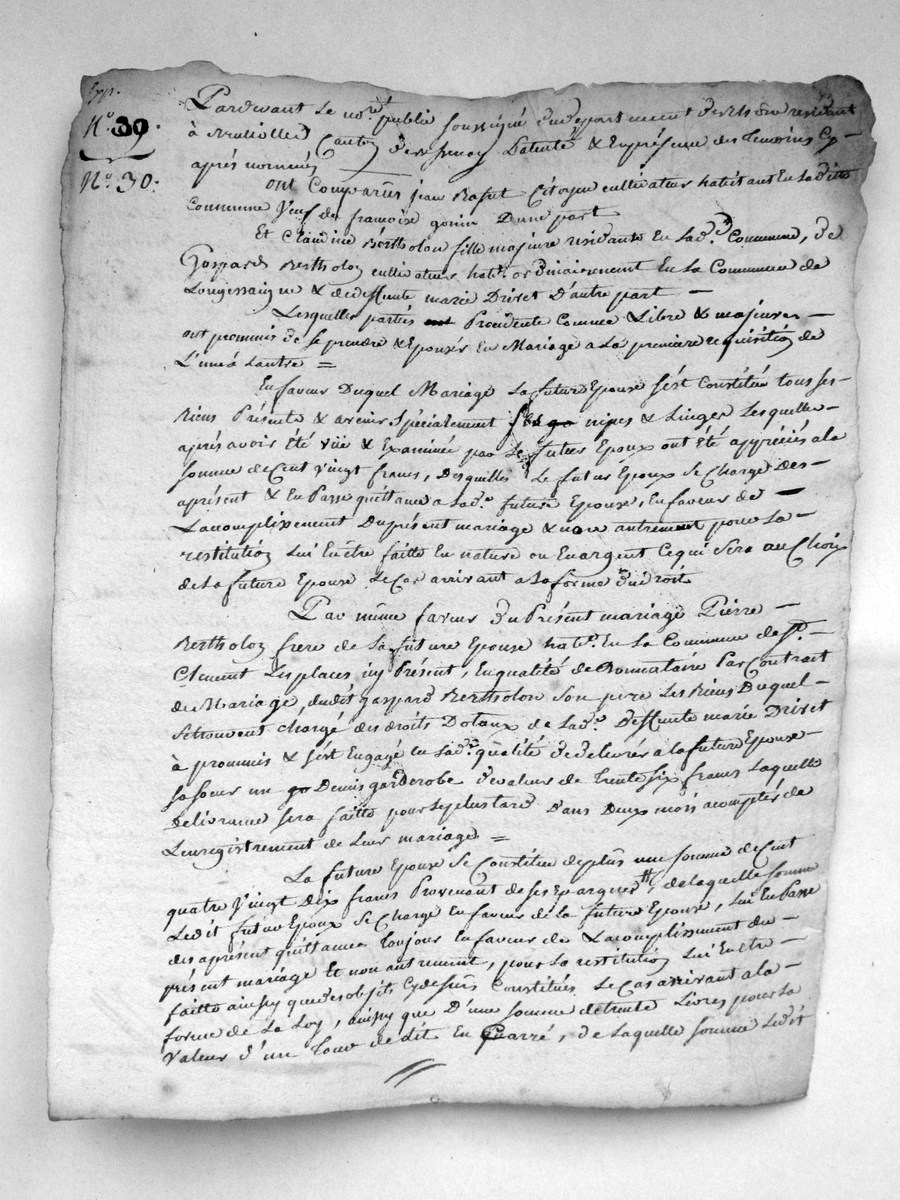 Exp.
N.º 39.
N.º 30.
Pardevant le no.re public soussigné du departement du Rhône residant
à Brullioles Canton de Patenté & En présence des temoins Cy –
après nommés
ont Comparûs jean citoyen cultivateur habitant En Laditte
commune veuf de francoise gonin D'une part
Et Claudine Bertholon fille majeure residante En Lad.e Commune, de
Gaspard Bertholon cultivateur hab.t ordinairement En La Commune de
Longessaigne & de deffunte marie Drivet D'autre part –
Lesquelles parties Procedente Comme Libre & majeures –
ont prommis de se prendre & Epouser En Mariage a La premiere requisition de
L'une à Lautre =
En faveur Duquel Mariage La future Epouse s'ést Constituée tous ses –
Biens Présents & avenir Spécialement ses nipes & Linges Lesquelles –
aprés avoir été vüe & Examinée par le futur Epoux ont été appréciés a la
somme de Cent vingt francs, Desquelles Le futur Epoux Se Charge des –
aprésent & En Passe quittance a Lad.e future Epouse, En faveur de –
L'acomplixement Duprésent mariage & non autrement pour La –
restitution Lui En être faitte En nature ou En argent Ce qui Sera au Choix
de La future Epouse Le Cas arrivant a la forme du droit
Par même faveur du Présent mariage Pierre –
Bertholon frere de La future Epouse hab.t En La Commune de S.t –
Clement Les places icy Présent, En qualité de Donnataire Par Contrait
de Mariage, dudit gaspard Bertholon Son pere Les Biens Duquel –
Se trouvent chargé des droits Dotaux de Lad.e Deffunte marie Drivet
à prommis & s'ést Engagé En Lad.e qualité de delivrer a la future Epouse –
sa soeur un Demis garderobe de valeur de trente six francs Laquelle
delivrance sera faitte pour Le plus tard Dans Deux mois acomptés de
L'enregistrement de Leur mariage =
La future Epouse Se Constitue de plus une somme de Cent
quatre vingt Dix francs Provenant de ses Epargnes de laquelle somme
Ledit futur Epoux Se Charge En faveur de La future Epouse, Lui En Passe
des aprésent quittance toujour En faveur de L'acomplissement du –
présent mariage Et non autrement, pour La restitution Lui En être –
faitte ainsy que des objets Cy dessus Constitués Le Cas arrivant a la –
forme de La Loy, ainsy que D'une somme de trente Livres pour La
Valeur d'un tour de lit En Quarré, de Laquelle somme Ledit